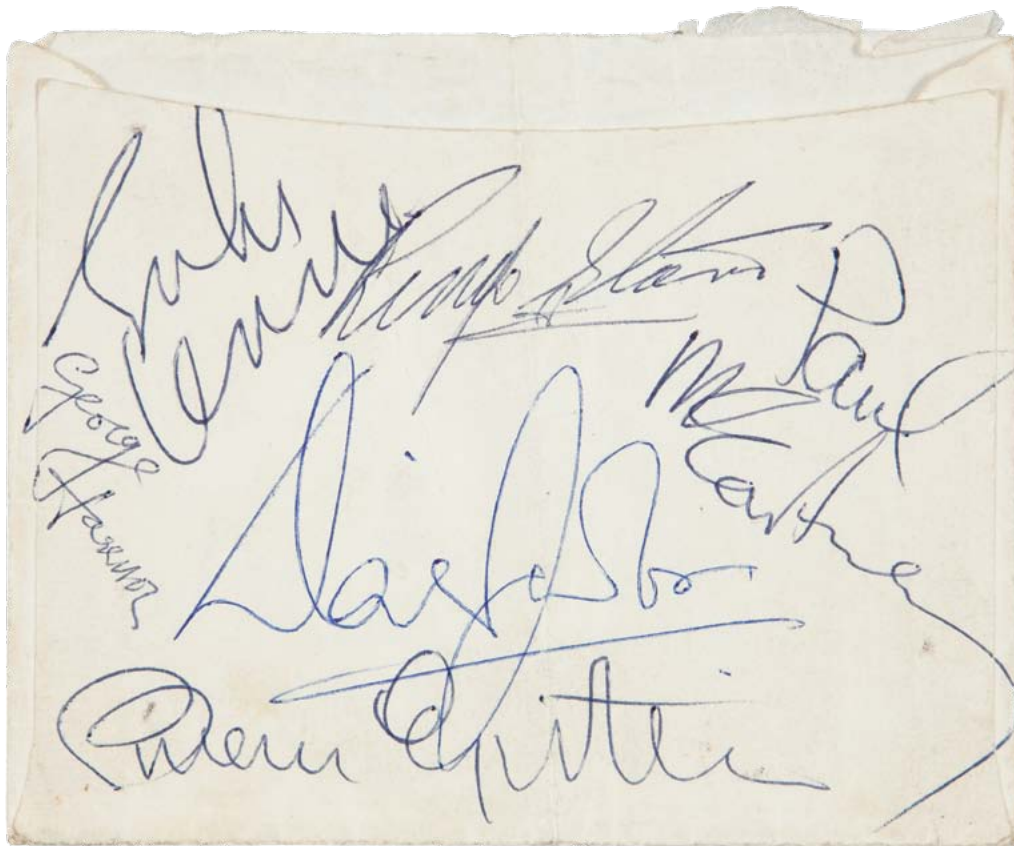 John
Lennon
Ringo Starr
Paul
McCartney
George
Harrison
Brian Epstein